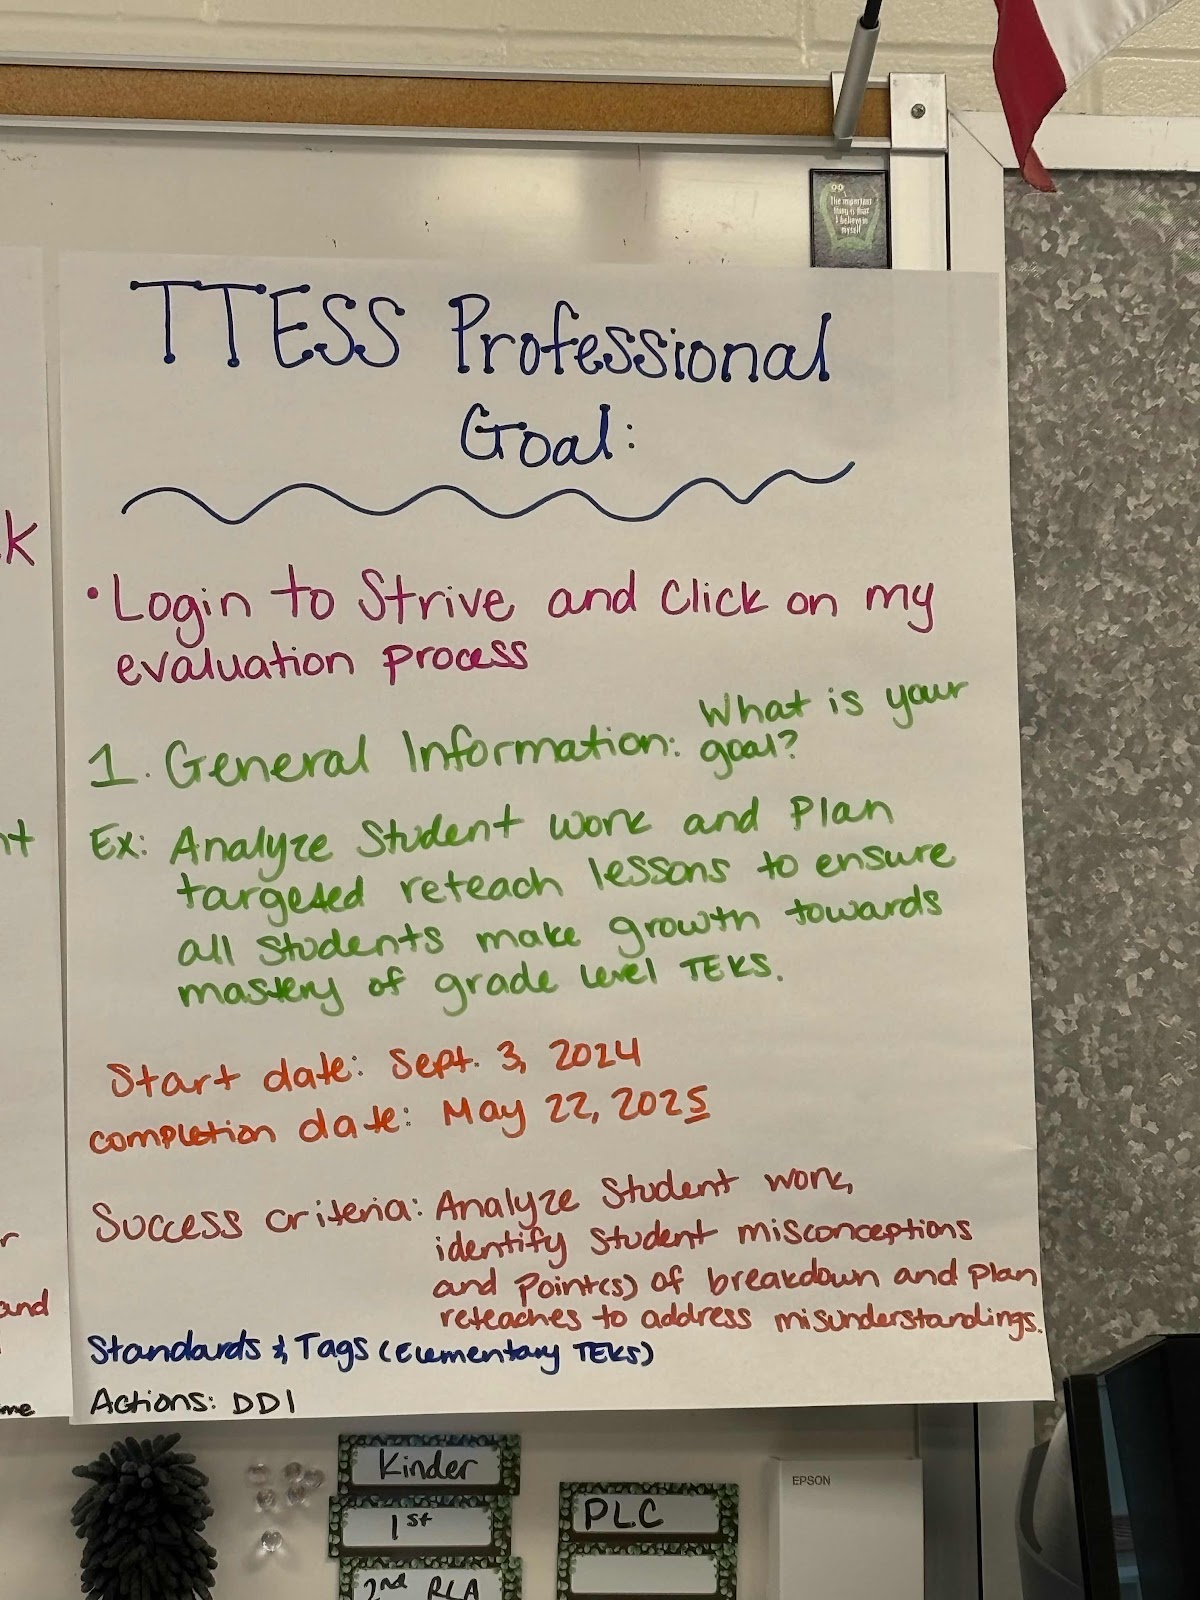 The important
thing is that
I believe in
myself
TTESS Professional
Goal:
• Login to Strive and Click on my
evaluation process
1. General Information: What is your
goal?
Ex: Analyze Student work and Plan
targeted reteach lessons to ensure
all students make growth towards
mastery of grade level TEKS.
Start date: Sept. 3, 2024
completion date: May 22, 2025
Success criteria: Analyze Student work,
identify student misconceptions
and Point(s) of breakdown and Plan
reteaches to address misunderstandings.
Standards & Tags (Elementary TEKS)
Actions: DDI
k
nt
r
and
me
Kinder
1st
2nd RLA
PLC
EPSON